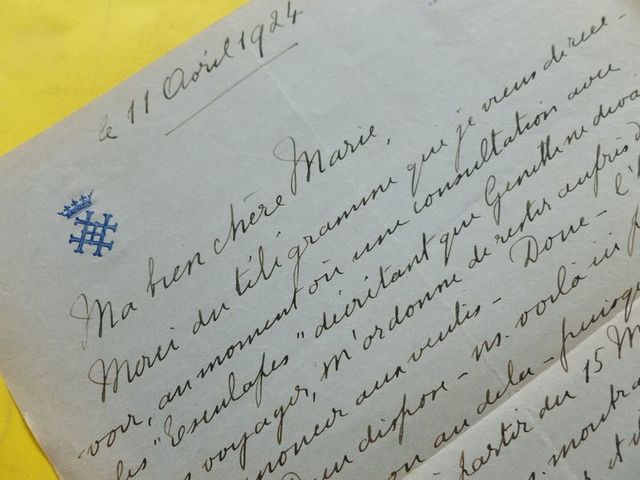 le 11 Avril 1924
Ma bien chère Marie,
Merci du télégramme que je viens de rece-
voir, au moment où une consultation avec
les "Esculapes" décrétant que Ginette ne
voyager, m'ordonne de rester auprès
aux ventes - Donc - l'
dispose - ns. voilà ici
au dela - puisqu
partir du 15 M
montra
et